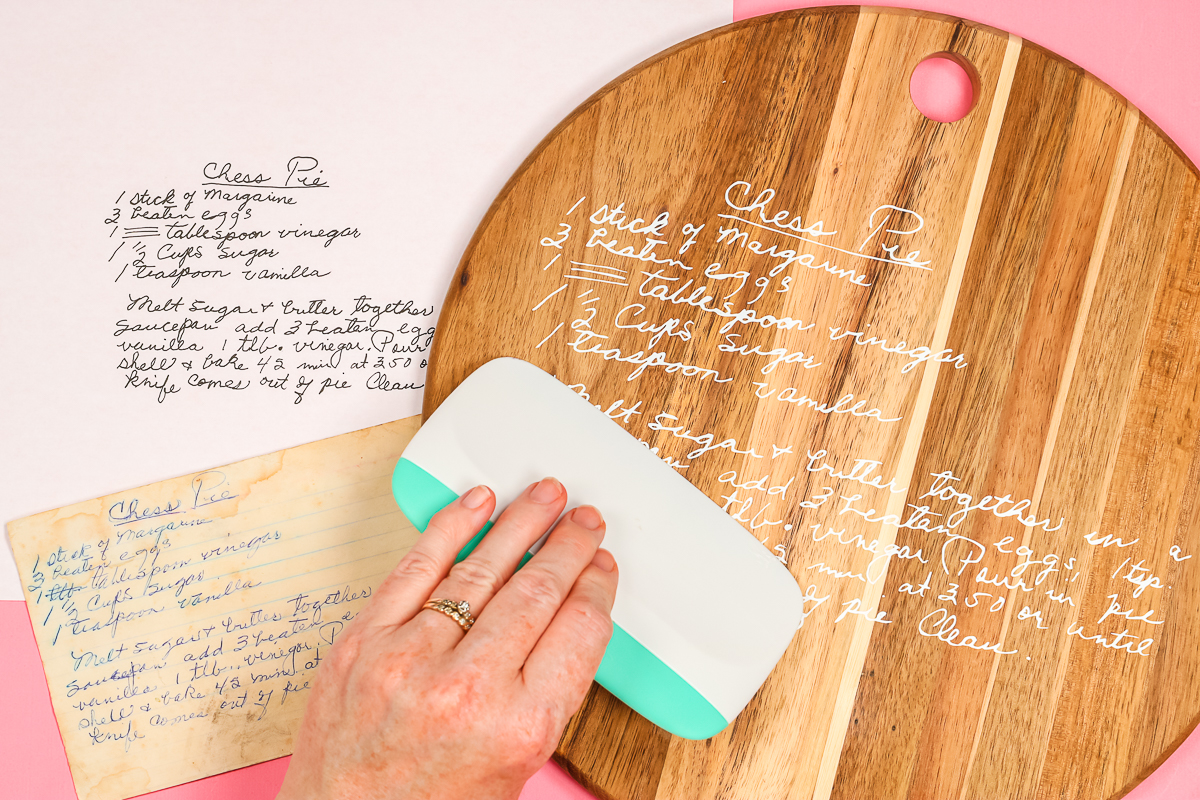 Chess Pie
1 stick of Margarine
3 beaten eggs
1 tablespoon vinegar
1 1/2 Cups Sugar
1 teaspoon vanilla
Melt Sugar & butter together
Saucepan add 3 beaten egg
vanilla 1 tlb. vinegar. Pour
shell & bake 45 min at 350 o
knife comes out of pie Clean
Chess Pie
1 stick of Margarine
3 beaten eggs
1 tablespoon vinegar
1 1/2 Cups Sugar
1 teaspoon vanilla
Melt Sugar & butter together in a
add 3 beaten eggs, 1 tsp.
tlb. vinegar. Pour in pie
min at 350 or until
of pie Clean.
Chess Pie
1 stick of Margarine
3 beaten eggs
1 tablespoon vinegar
1 1/2 Cups Sugar
1 teaspoon vanilla
Melt Sugar & butter together
Saucepan add 3 beaten
vanilla 1 tlb. vinegar.
shell & bake 45 min at
knife comes out of pie